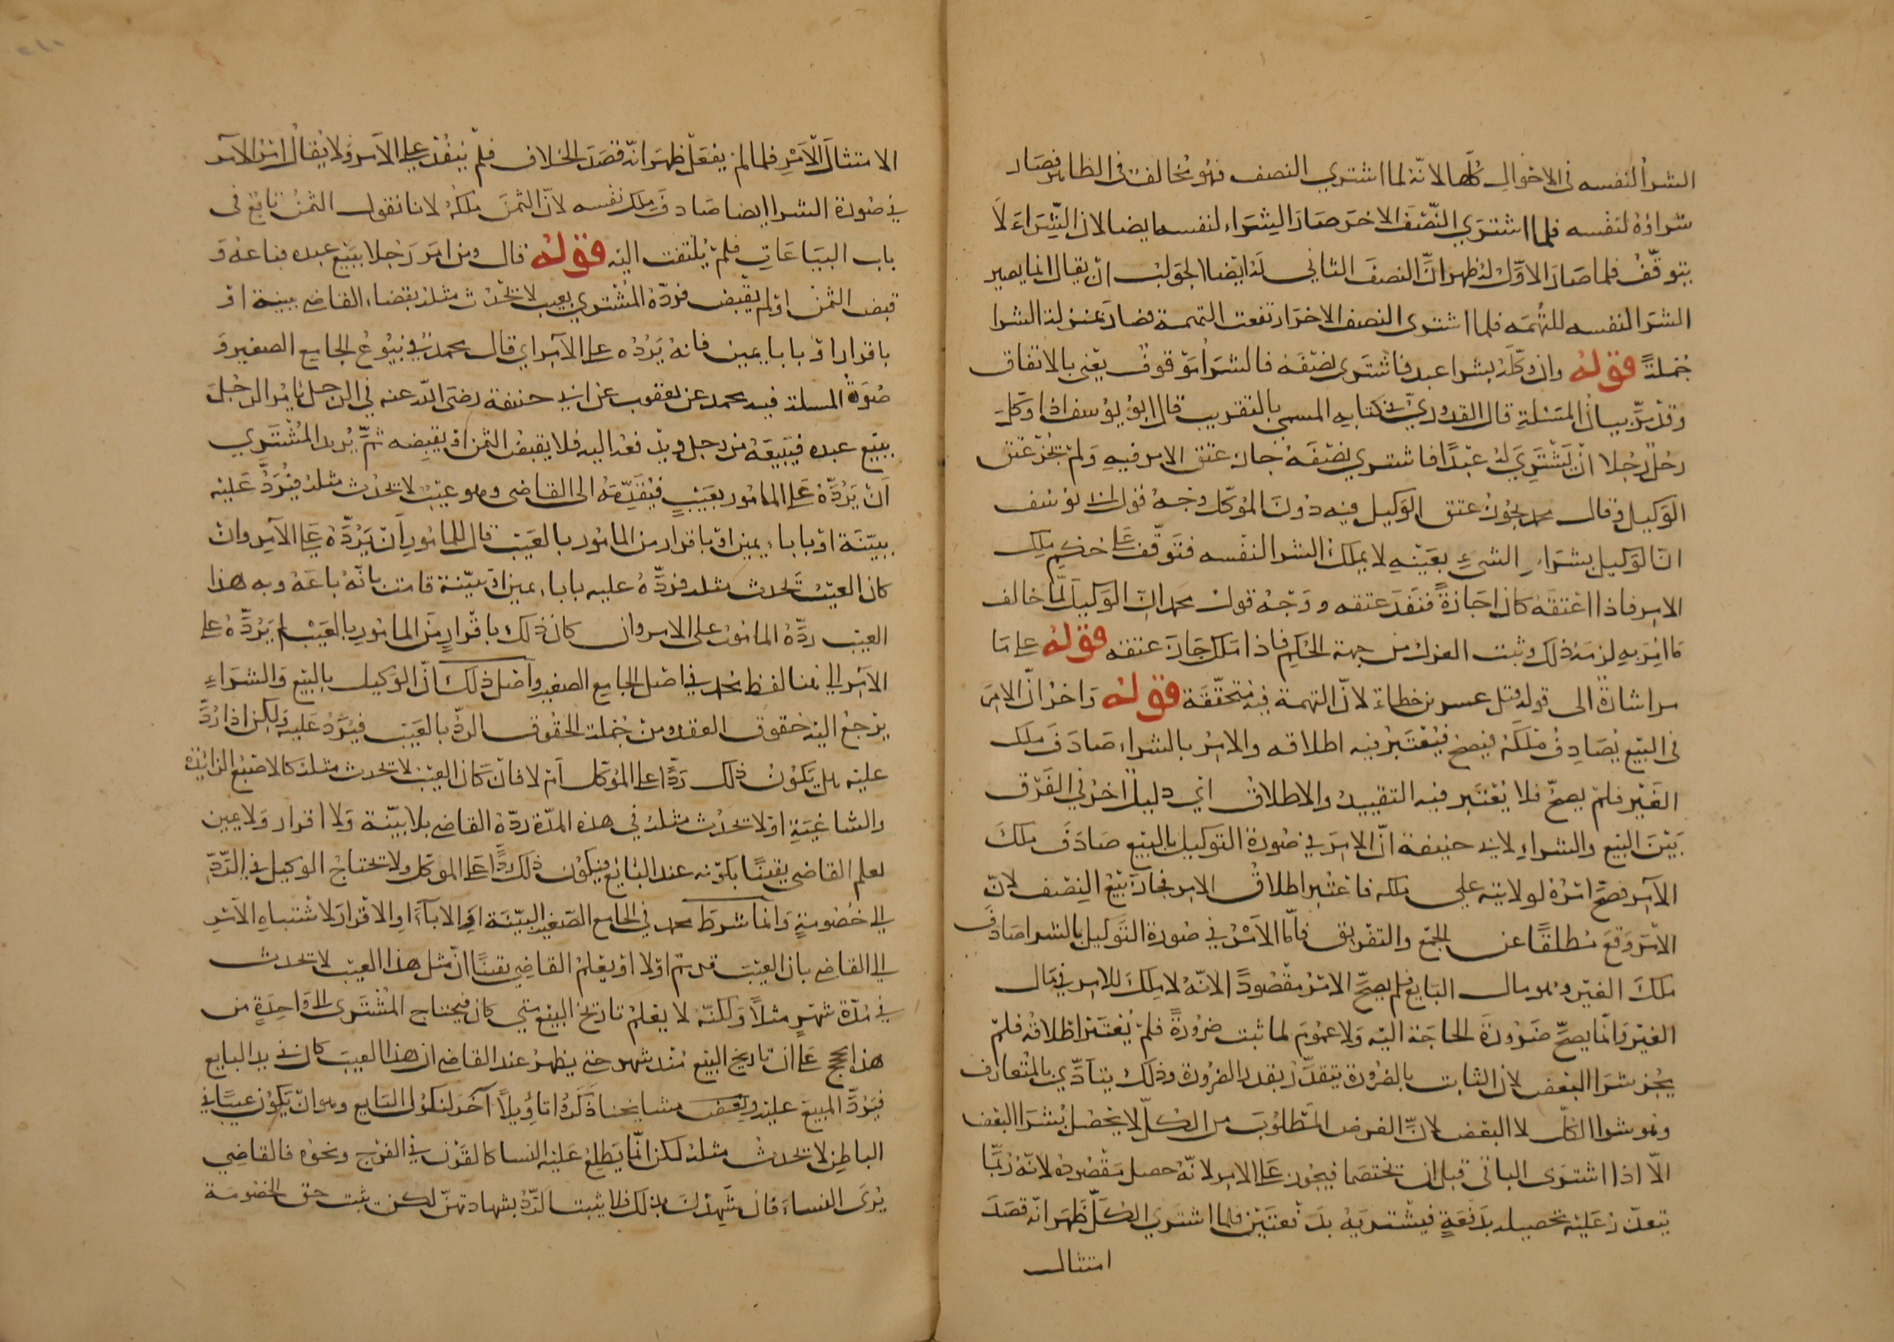 الشرا لنفسه فى الاحوال كلّها لانّه لما اشتري النصف فهو مخالف فى الظاهر فصار
شراؤه لنفسه فلما اشتري النّصْفَ الاخر صار الشِراء لنفسه ايضا لان الشِّرَاءَ لَا
يتوقّفُ فلما صَارَ الاوّل له ظهر انَّ النصفَ الثاني له ايضا الجواب ان يقال انما يصير
الشرا لنفسه للتُّهمَه فلما اشترى النصف الاخر ارتفعت التهمة فصار بمنزلة الشرا
جُمْلةً قوله وان وكّلَهُ بشرا عبد فاشترى نصْفَه فالشراْ موقوف يعْنى بالاتفاق
وقدْ مرّ بيان المسْئلةِ قال القدوريّ في كتابه المسمى بالتقريب قال ابو يوسف اذا وكّلَ
رجل رجلا ان يَشْتَرِيَ لهُ عبْدًا فاشتري نصْفَهُ جاز عتق الامر فيهِ وَلم يجُزْ عتق
الوكيل وقال محمد يجوز عتق الوكيل فيه دوْنَ المُوكّل وجْهُ قول ابى يوسف
انّ الوكيل بشراءِ الشئِ بعَيْنِهِ لا يملك الشرا لنفسه فتَوقّف على حكم ملك
الامر فاذا اعْتقَه كان اجَازةً فنَفَذَ عتقه وَوَجْهُ قول محمد انّ الوكيل لمّا خالف
ما امِرَ به لزمَهُ ذلك وثبت العزل من جهة الحكم فاذا ملك جَازَ عتقه قوله على ما
مر اشارةً الى قوله قبل عسر بن خطاء لانّ التهمة فيه متحقّقَة قوله وَاخرُ انّ الامرَ
فى البَيع يُصَادِفُ مِلْكَهُ فيصحُّ فيُعْتَبرُ فيه اطلاقه والامْر بالشراء صَادَفَ ملك
الغَيْر فلمْ يصحّ فلا يُعْتَبر فيه التقييد والاطلاق اي دليل آخرُ في الفَرْق
بَيْنَ البَيع والشراءِ لابي حنيفة انّ الامرَ في صُورة التوكيل بالبيع صَادَفَ ملكَ
الآمر فصحَّ امْرُهُ لولايته على ملكه فاعْتُبر اطلاقُ الامر فجازَ بَيْعُ النِصْف لانّ
الامرَ وَقَعَ مُطلقًا عن الجمْع والتفْريق فامّا الامْرُ في صُورة التَّوكيل بالشرا صَادفَ
ملكَ الغيْر وهو مال البَايع فلم يصحَّ الامْرُ مقْصُودًا لانّهُ لا مِلكَ للامر في مال
الغيْر وَانّما يصحُّ ضَرُورَةَ الحاجة اليْه وَلا عمُومَ لما ثبت ضرُورةً فلمْ يُعْتَبَرْ اطلاقُهُ فلمْ
يجُز شرَا البَعض لان الثابت بالضرُورة يتقدّرُ بقدر الضرورة وذلك يتأدّي بالمُتعارف
وهُو شرا الكلّ لا البعْض لانّ الغرض المطلوبَ من الكلّ لا يحْصل بُشرَا البعض
الّا اذا اشترَى الباقى قبل ان يختصمَا فيجُوز على الامر لانّهُ حصل مَقْصُودُه لانّهُ رُبَّمَا
يتعذّر عَليْه تحصيله بدَفْعَةٍ فيشْتريَهُ بدَفْعتَيْن فلما اشتري الكلّ ظَهَرَ انّه قصَدَ
امتثال
الامتثال الآمر فلما لم يفعَلْ ظهَرَ انّه قصَدَ الخلاف فلمْ يَنْفُذْ على الآمر وَلا يُقالُ انّ الآمر
في صُورة الشرا ايضا صَادفَ مِلكَ نفْسه لانّ الثمنَ ملكُهُ لانا نقول الثمنُ تابعٌ فى
باب البيَاعَاتِ فلمْ يُلتفت اليْه قوله قال ومن امَر رَجُلا ببَيْع عبده فباعَهُ وَ
قبض الثمنَ اوْ لم يقْبض فردّهُ المُشْتري بعيب لا يحْدُث مثلهُ بقضاء القاضى ببينة اوْ
باقرارٍ اوْ باباء يمين فانّهُ يَرُدُّه على الآمر اي قال محمدٌ في بيُوع الجامع الصغير وَ
صُورَةُ المسلة فيه محمد عن يعقوب عن ابي حنيفة رضى الله عنه في الرجل يامُر الرجُلَ
ببَيْع عبده فيَبِيعَهُ من رجل ويدْفعه اليه فلا يقبض الثمن اوْ يقبضِه ثمَّ يُريد المُشْتَري
اَنْ يَرُدَّهُ عَلى المامُور بعَيْبٍ فيُقَدِّمَهُ الى القاضى وهو عيْبٌ لا يحْدُث مثلهُ فيُرَدُّ عَليْهِ
ببيّنَة اوْ باباءِ يمين اوْ باقرار من المامُور بالعَيْب قال للمامُور اَنْ يَرُدَّهُ على الآمر وان
كان العيْبُ يَحْدث مثله فردّهُ عليه باباء يمين اوْ ببيّنة قامت بانّهُ باعَهُ وبه هذا
العيب ردَّهُ المامُورُ على الامر وان كان ذلك باقْرارٍ من المامُور بالعَيْب لم يَرُدَّهُ على
الآمر الى هنا لفظ محمد في اصْل الجامع الصغير وَاصْل ذلك انّ الوكيل بالبيْع وَالشراءِ
يرْجعُ اليْه حقوق العقد ومن جُمْلة الحُقوق الردُّ بالعيْب فيُرَدُّ عليْه وَلكن اذا رُدَّ
عليْه هل يَكوُن ذلك رَدًّا على المُوكّل اَمْ لا فانْ كَانَ العيْب لا يحدث مثلهُ كالاصْبع الزائدة
والشاغِيَةِ اوْ لا يحْدُث مثلهُ في هذه المدّة ردّهُ القاضى بلا بيّنة وَلا اقرار وَلا يمين
لعلم القاضى يقينًا بكوْنه عند البَايع فيكوُن ذلك ردًّا على الموكّل ولا يحتاجُ الوكيل في الرّدّ
الى خصُومةٍ وَانمّا شرط محمد في الجامع الصّغير البيّنَة اَوِ الاباءَ اوِ الاقْرارَ لاشْتباهِ الاَمْر
على القاضى بان العيْبَ قديم اوْ لا اوْ يعْلمُ القاضي يقينًا انّ مثل هذا العيْب لا يحْدث
في مُدّة شهْرٍ مثلاً وَلكنّه لا يعْلمُ تاريخ البيْع متى كان فيحتاج المُشتَرى الى وَاحِدةٍ من
هذه الحجج على انّ تاريخ البيْع مُنذ شهر حتى يظهرُ عند القاضى ان هذا العيبَ كان في يد البايع
فيَرُدُّ المبيع عليْه وبعض مشايخنا ذكَرُوا تاوُيلاً آخَر لنكول البَايع وهو ان يَكونُ عيْبًا في
الباطن لا يحْدثُ مثلهُ لكن انّما يَطلعُ عَليْه النسا كالقرْن في الفرْج ونحْوه فالقاضي
يُرى النساءَ فان شَهِدْنَ بذلك فلا يثبت الردُّ بشهادتهنّ لكن يثبت حق الخصُومة